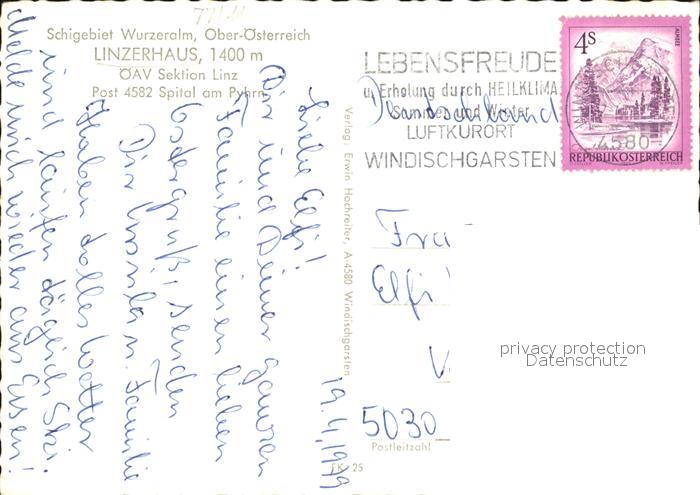 77/11
Schigebiet Wurzeralm, Ober-Österreich
LINZERHAUS, 1400 m
ÖAV Sektion Linz
Post 4582 Spital am Pyhrn
19.4.1979
Liebe Elfi!
Dir und Deiner ganzen
Familie einen lieben
Ostergruß, senden
Dir u. Familie
Haben tolles Wetter
und laufen täglich Ski.
Melde mich wieder aus Essen!
Verlag: Erwin Hochreiter, A-4580 Windischgarsten
FK 25
LEBENSFREUDE
u. Erholung durch HEILKLIMA
Sommer und Winter
LUFTKURORT
WINDISCHGARSTEN
4580
4S
ALMSEE
REPUBLIK ÖSTERREICH
Deutschland
Frau
Elfi
V
5030
Postleitzahl
privacy protection
Datenschutz